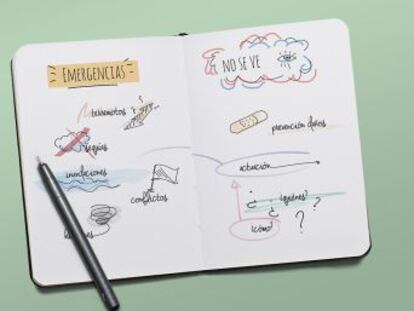 EMERGENCIAS
terremotos
sequías
inundaciones
conflictos
NO SE VE
prevención daños
actuación
¿ ¿quiénes? ?
¿ ¿cómo? ?